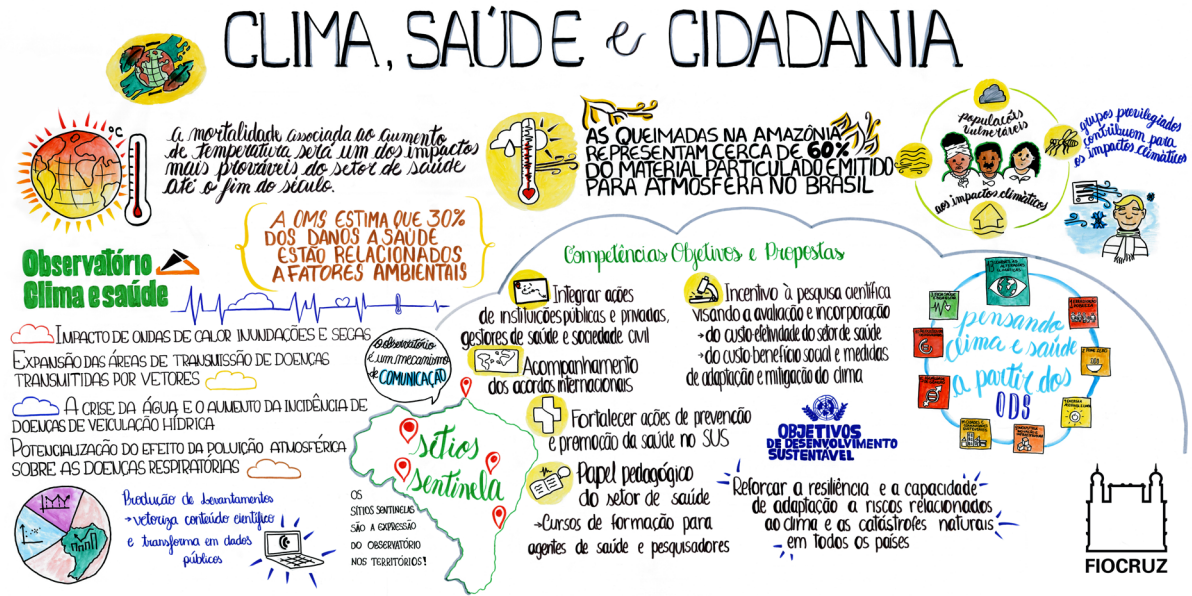 CLIMA, SAÚDE e CIDADANIA
°C
a mortalidade associada ao aumento
de temperatura será um dos impactos
mais prováveis do setor de saúde
até o fim do século.
AS QUEIMADAS NA AMAZÔNIA
REPRESENTAM CERCA DE 60%
DO MATERIAL PARTICULADO EMITIDO
PARA ATMOSFERA NO BRASIL
populações
vulneráveis
aos impactos climáticos
grupos previlegiados
contribuem para
os impactos climáticos
A OMS ESTIMA QUE 30%
DOS DANOS A SAÚDE
ESTÃO RELACIONADOS
A FATORES AMBIENTAIS
Observatório
Clima e saúde
IMPACTO DE ONDAS DE CALOR INUNDAÇÕES E SECAS
EXPANSÃO DAS ÁREAS DE TRANSMISSÃO DE DOENÇAS
TRANSMITIDAS POR VETORES
A CRISE DA ÁGUA E O AUMENTO DA INCIDÊNCIA DE
DOENÇAS DE VEICULAÇÃO HÍDRICA
POTENCIALIZAÇÃO DO EFEITO DA POLUIÇÃO ATMOSFÉRICA
SOBRE AS DOENÇAS RESPIRATÓRIAS
Produção de Levantamentos
→ vetoriza conteúdo científico
e transforma em dados
públicos
O observatório
é um mecanismo
de COMUNICAÇÃO
sítios
sentinela
OS
SÍTIOS SENTINELAS
SÃO A EXPRESSÃO
DO OBSERVATÓRIO
NOS TERRITÓRIOS!
Competências Objetivos e Propostas
Integrar ações
de instituições públicas e privadas,
gestores de saúde e sociedade civil
Acompanhamento
dos acordos internacionais
Fortalecer ações de prevenção
e premoção da saúde no SUS
Papel pedagógico
do setor de saúde
→ Cursos de formação para
agentes de saúde e pesquisadores
Incentivo à pesquisa científica
visando a avaliação e incorporação
→ do custo-efetividade do setor de saúde
→ do custo-benefício social e medidas
de adaptação e mitigação do clima
OBJETIVOS
DE DESENVOLVIMENTO
SUSTENTÁVEL
Reforçar a resiliência e a capacidade
de adaptação a riscos relacionados
ao clima e as catástrofes naturais
em todos os países
pensando
clima e saúde
a partir dos
ODS
FIOCRUZ